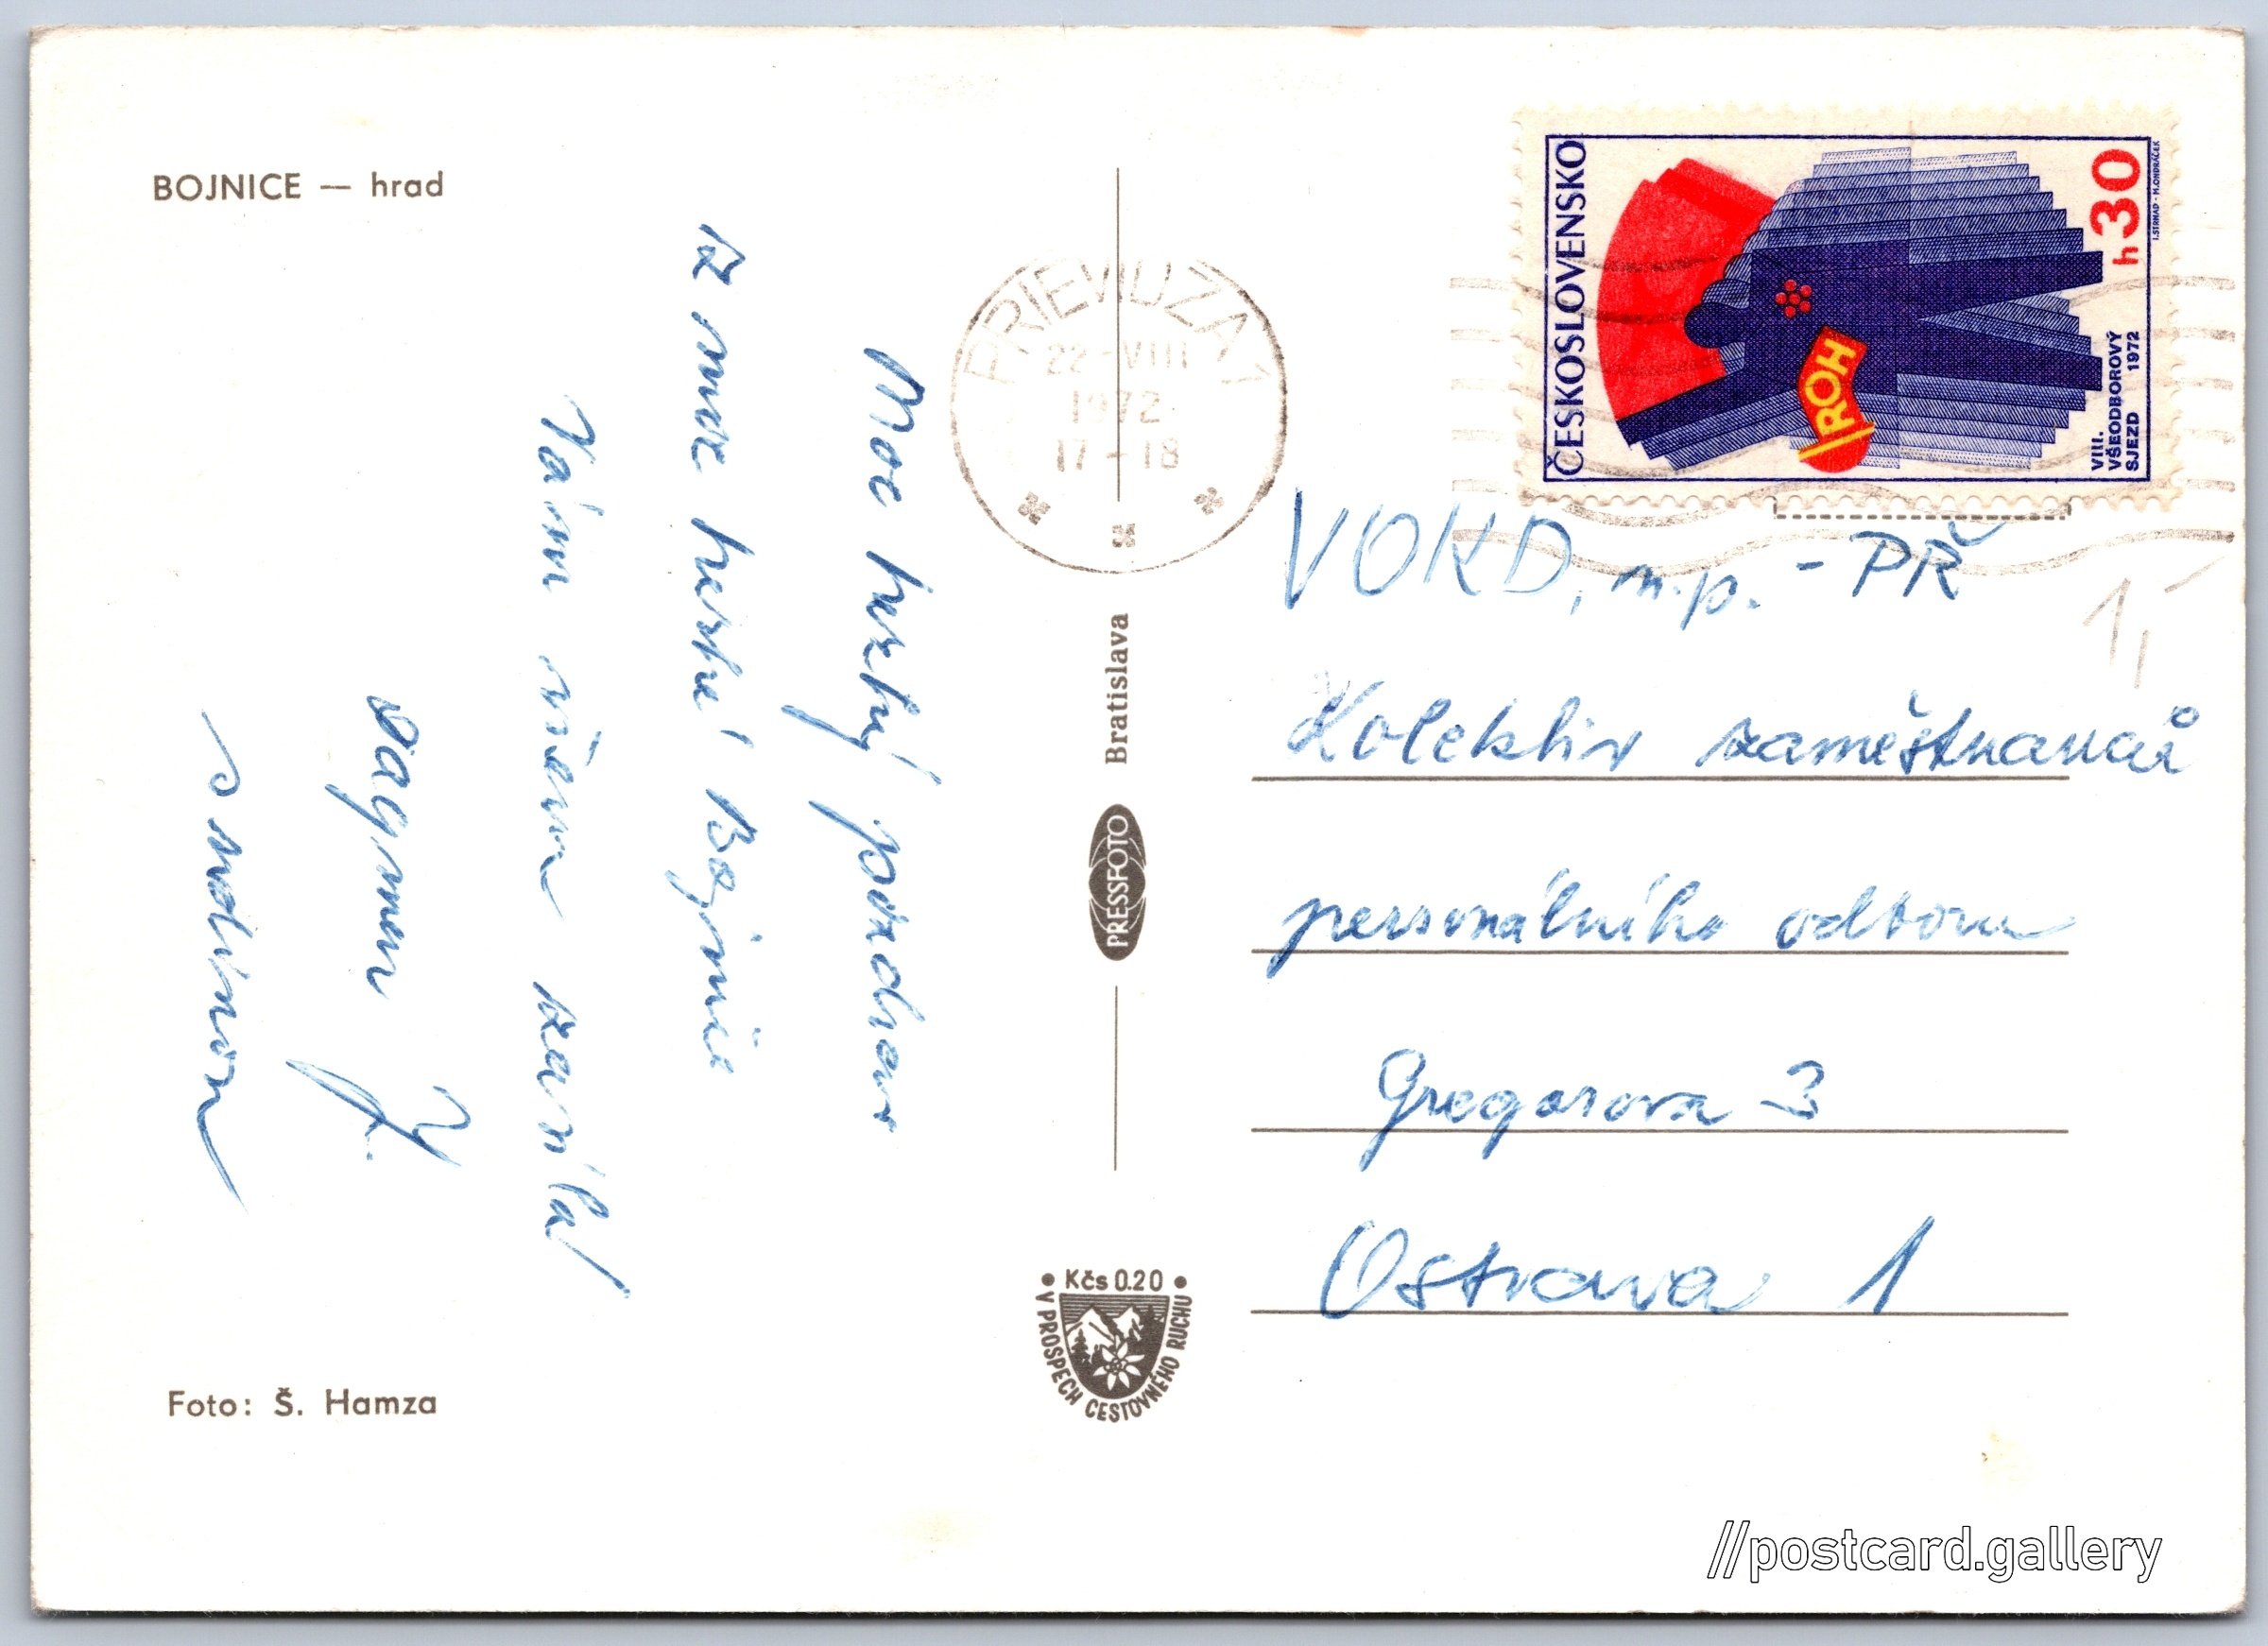 BOJNICE — hrad
Moc hezký pozdrav
z moc hezké Bojnice
Vám všem zasílá
Dagmar
s rodinou
Foto: Š. Hamza
PRIEVIDZA 1
22-VIII
1972
17-18
Bratislava
PRESSFOTO
• Kčs 0.20 •
V PROSPECH CESTOVNÉHO RUCHU
ČESKOSLOVENSKO
ROH
h 30
VIII.
VŠEODBOROVÝ
SJEZD 1972
I.STRNAD - M.ONDRÁČEK
VOKD, n.p. - PŘ
Kolektiv zaměstnanců
personálního odboru
Gregorova 3
Ostrava 1
//postcard.gallery